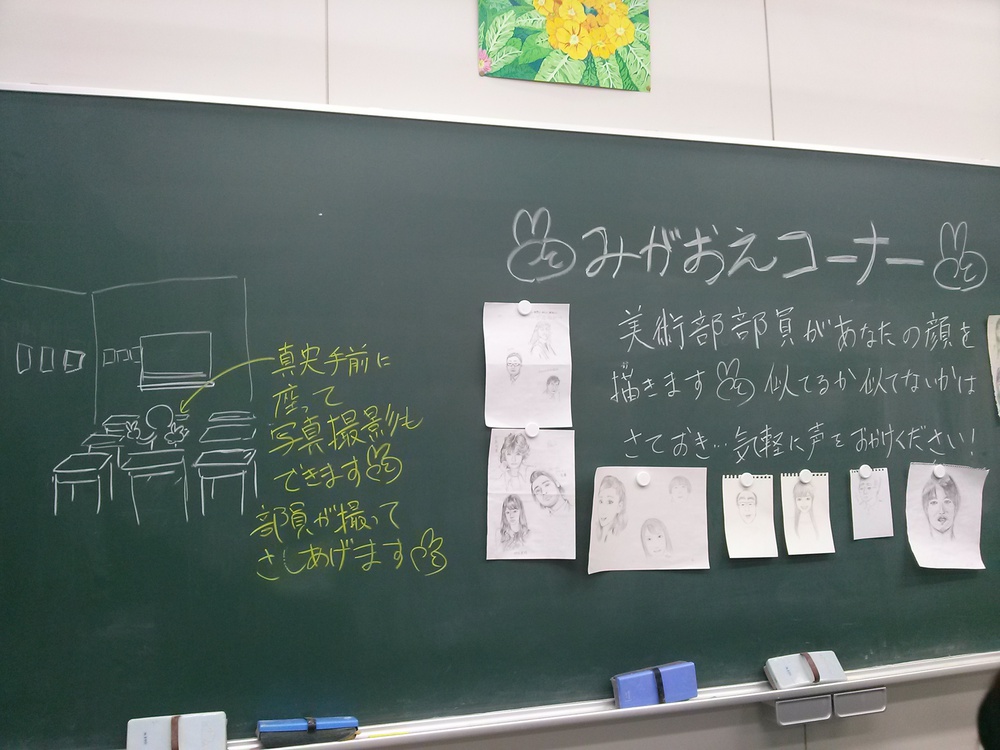 みがおえコーナー
美術部部員があなたの顔を
描きます 似てるか似てないかは
さておき…気軽に声をおかけください!
真央手前に
座って
写真撮影も
できます
部員が撮って
さしあげます